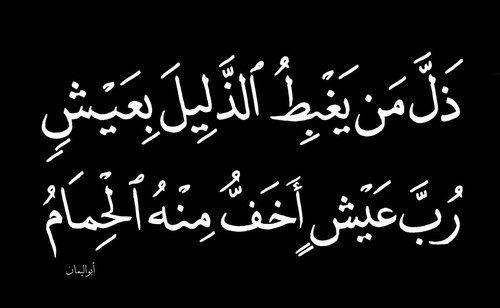 ذَلَّ مَن يَغْبِطُ ٱلذَّلِيلَ بِعَيْشٍ
رُبَّ عَيْشٍ أَخَفُّ مِنْهُ ٱلْحِمَامُ
أبو اليمان